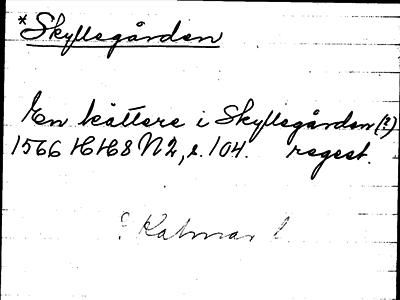 *Skyllsgården
En kättare i Skyllsgården (?)
1566 HH8 N2, s. 104. regest.
? Kalmar l.